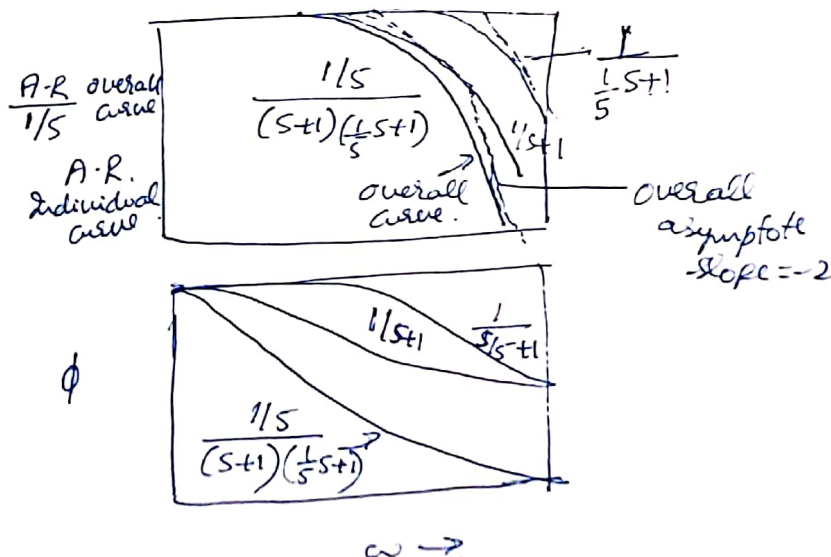 A·R overall
1/5 curve
A·R.
Individual
curve
1/5
(S+1)(1/5 S+1)
overall
curve.
1/S+1
1
1/5 S+1
overall
asymptote
slope = -2
ϕ
1/S+1
1
S/5+1
1/5
(S+1)(1/5 S+1)
ω →